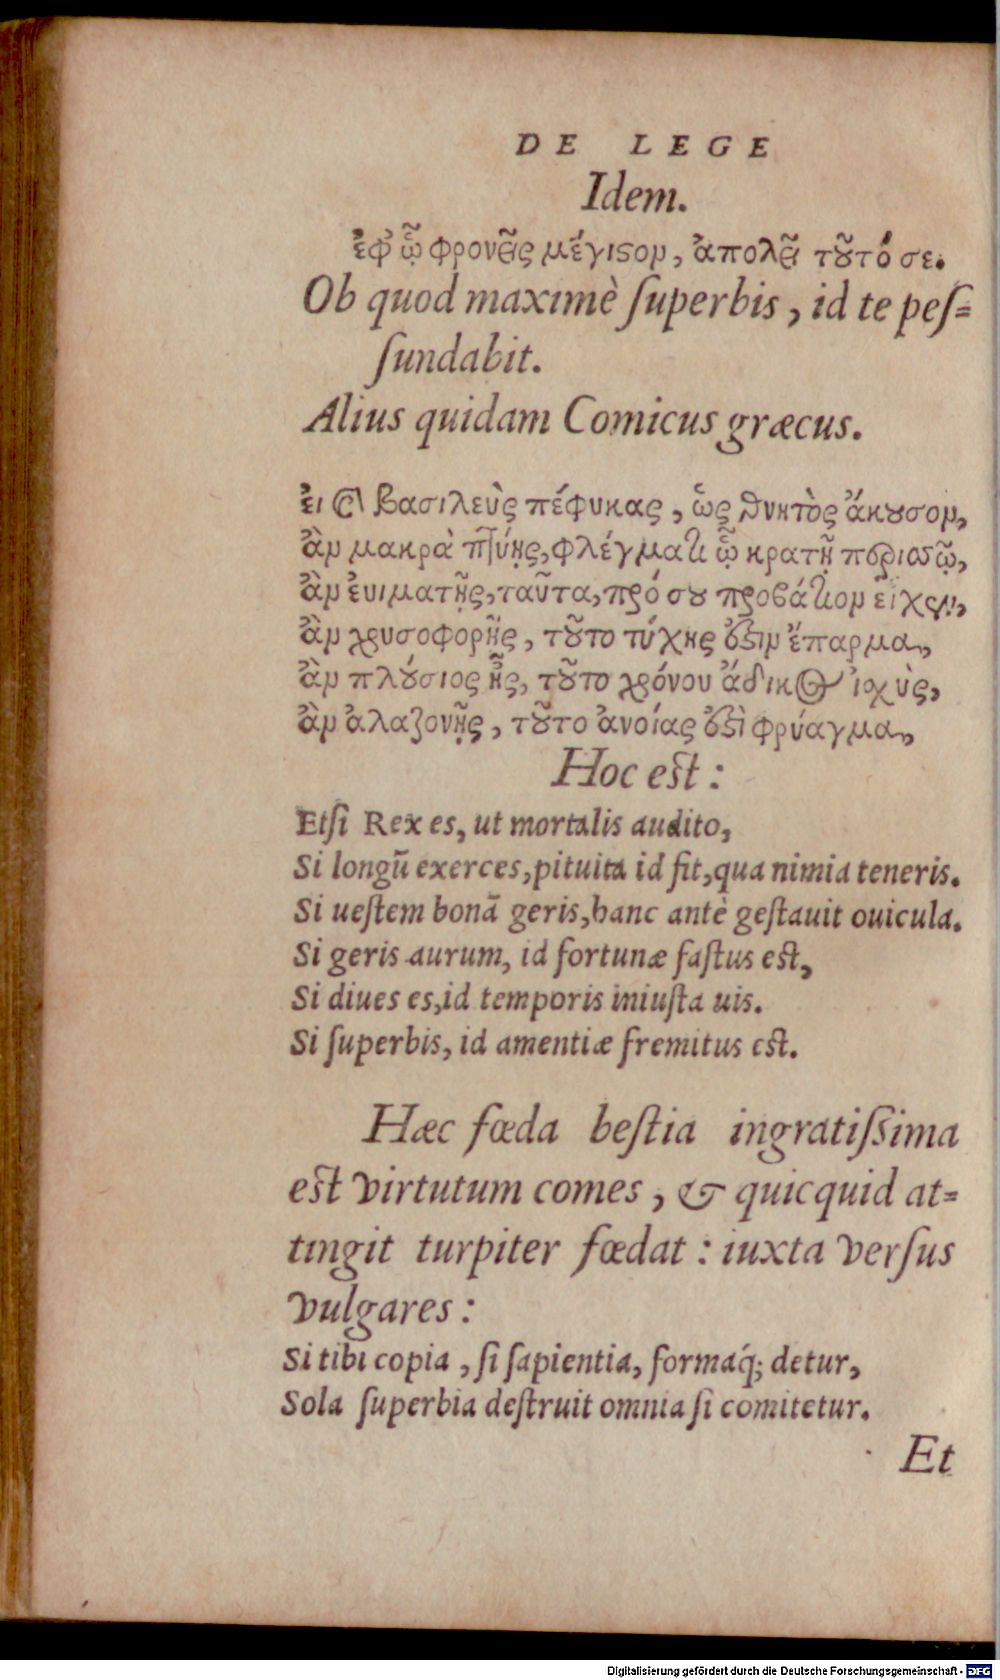 DE LEGE
Idem.
ἐφ' ᾧ φρονεῖς μέγιστον, ἀπολεῖ τοῦτό σε.
Ob quod maximè ſuperbis, id te peſ=
ſundabit.
Alius quidam Comicus græcus.
εἰ καὶ βασιλεὺς πέφυκας, ὡς θνητὸς ἄκουσον,
ἂν μακρὰ πτύῃς, φλέγματι ᾧ κρατῇ περισσῷ,
ἂν ἐυιματῇς, ταῦτα, πρό σου προβάτιον εἶχεν,
ἂν χρυσοφορῇς, τοῦτο τύχης ἐστὶν ἔπαρμα,
ἂν πλούσιος ᾖς, τοῦτο χρόνου ἄδικος ἰσχὺς,
ἂν ἀλαζονῇς, τοῦτο ἀνοίας ἐστὶ φρύαγμα,
Hoc est:
Etſi Rex es, ut mortalis audito,
Si longũ exerces, pituita id fit, qua nimia teneris.
Si ueſtem bonã geris, hanc antè geſtauit ouicula.
Si geris aurum, id fortunæ faſtus est,
Si diues es, id temporis iniuſta uis.
Si ſuperbis, id amentiæ fremitus est.
Hæc fœda beſtia ingratiſſima
est virtutum comes, & quicquid at=
tingit turpiter fœdat: iuxta verſus
vulgares:
Si tibi copia, ſi ſapientia, formaq́; detur,
Sola ſuperbia deſtruit omnia ſi comitetur.
Et
Digitalisierung gefördert durch die Deutsche Forschungsgemeinschaft - DFG